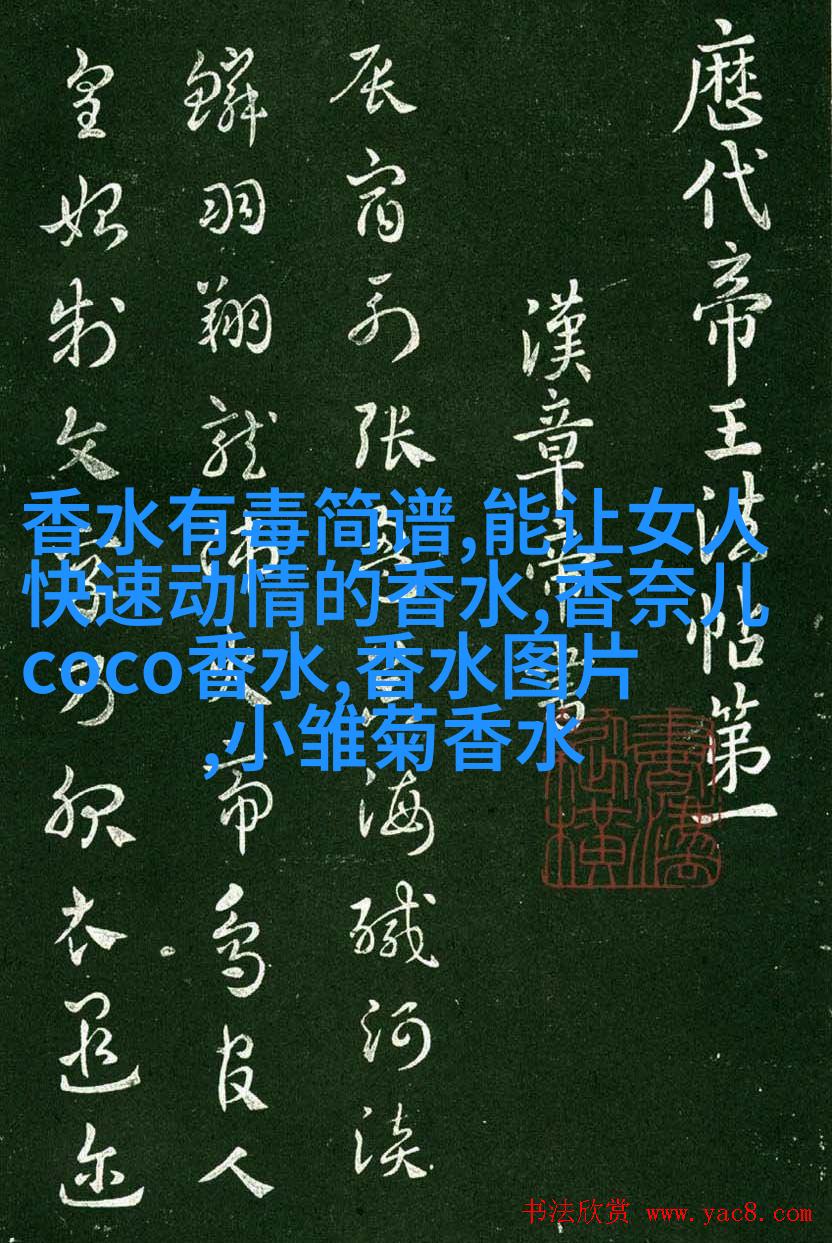 厯代帝王法帖第一
漢章帝書
辰宿列張海鹹河淡
鱗羽翔龍師火帝鳥官人
皇始制文字乃服衣遐迩
香水有毒简谱,能让女人
快速动情的香水,香奈儿
coco香水,香水图片
,小雏菊香水
书法欣赏 www.yac8.com